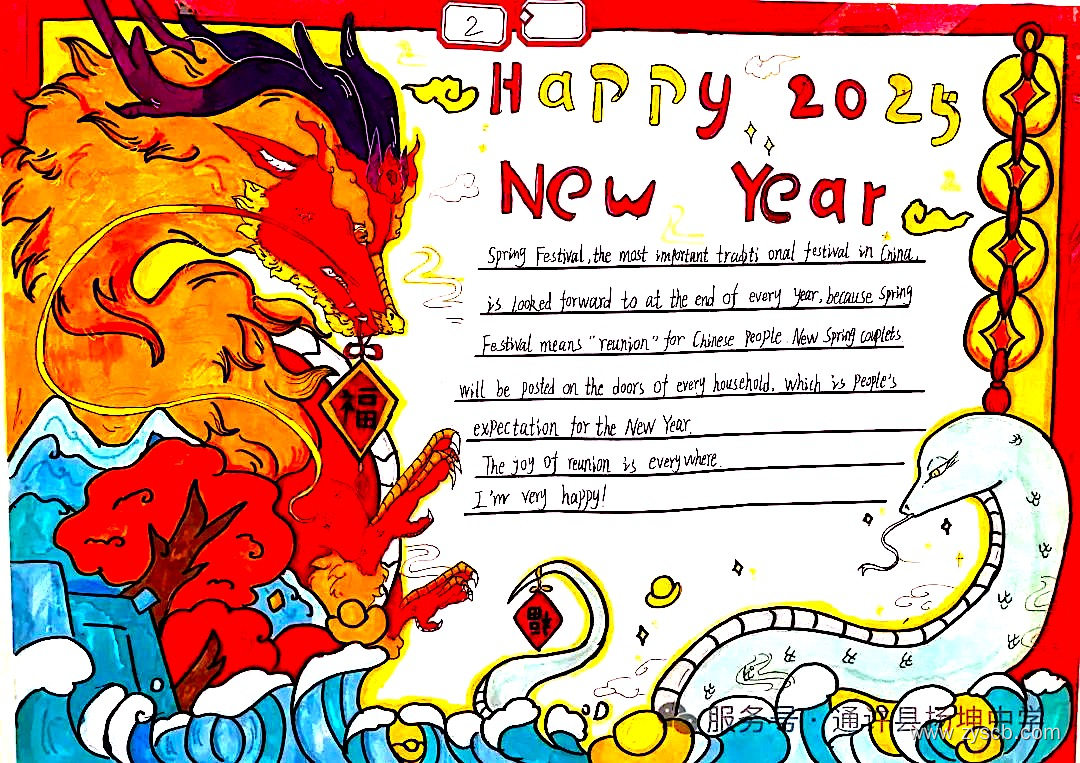 2
Happy 2025
New Year
Spring Festival, the most important traditi onal festival in China.
is looked forward to at the end of every year, because Spring
Festival means "reunion" for Chinese people New Spring couplets
will be posted on the doors of every household, which is people's
expectation for the New Year.
The joy of reunion is everywhere.
I'm very happy!
福
福
服务号·通许县扬坤中学
www.zyscb.com